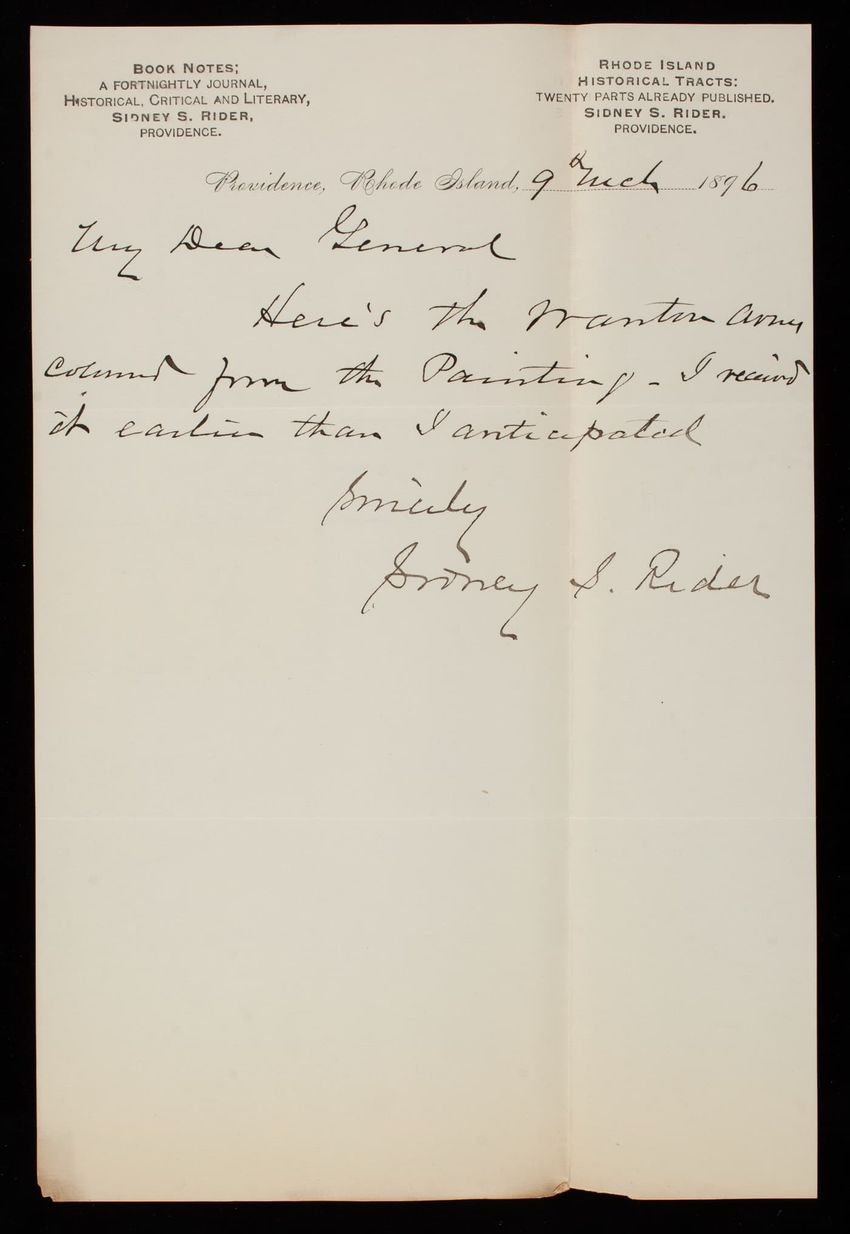 BOOK NOTES;
A FORTNIGHTLY JOURNAL,
HISTORICAL, CRITICAL AND LITERARY,
SIDNEY S. RIDER,
PROVIDENCE.
RHODE ISLAND
HISTORICAL TRACTS:
TWENTY PARTS ALREADY PUBLISHED.
SIDNEY S. RIDER.
PROVIDENCE.
Providence, Rhode Island, 9th Mch 1896
My Dear General
Here's the Wanton Arms
colored from the Painting - I received
it earlier than I anticipated
Sincerely
Sidney S. Rider